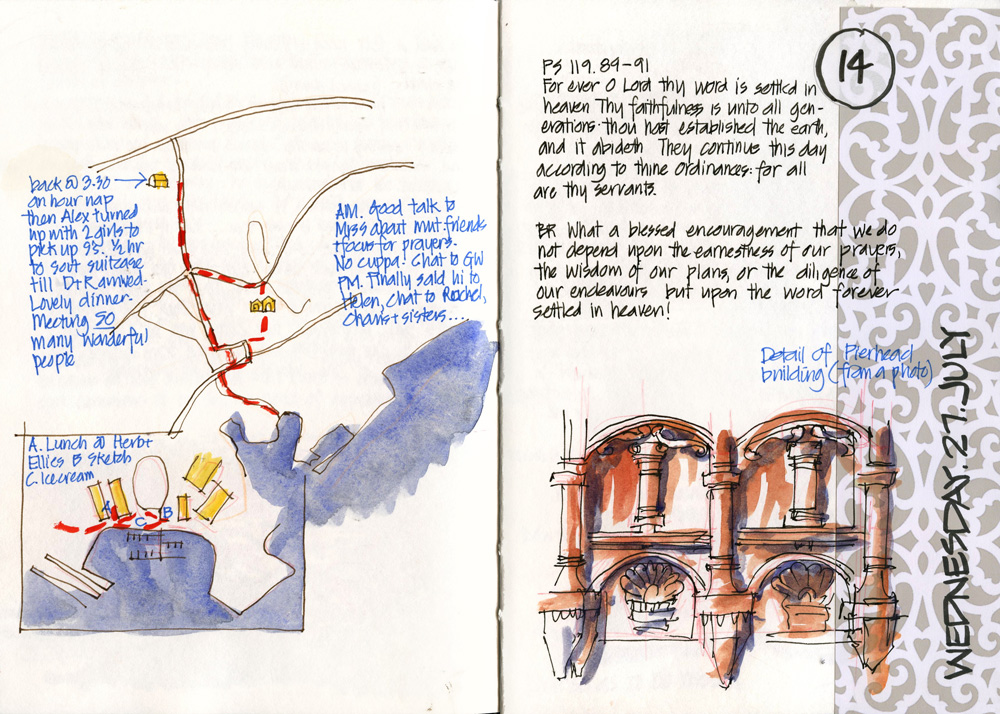 back @ 3.30
an hour nap
then Alex turned
up with 2 girls to
pick up SS. ½ hr
to sort suitcase
till D+R arrived.
Lovely dinner.
Meeting SO
many wonderful
people
AM. Good talk to
Miss apart mut. friends
+ focus for prayers.
No cuppa! Chat to GW
PM. Finally said hi to
Helen, chat to Rachel,
+ sisters....
A. Lunch @ Herb+
Ellies B Sketch
C. Icecream
A
C
B
14
PS 119. 89-91
For ever O Lord thy word is settled in
heaven Thy faithfulness is unto all gen-
erations: thou hast established the earth,
and it abideth They continue this day
according to thine ordinances: for all
are thy servants.
BR What a blessed encouragement that we do
not depend upon the earnestness of our prayers,
the wisdom of our plans, or the diligence of
our endeavours but upon the word forever
settled in heaven!
Detail of Pierhead
building (from a photo)
WEDNESDAY. 27. JULY